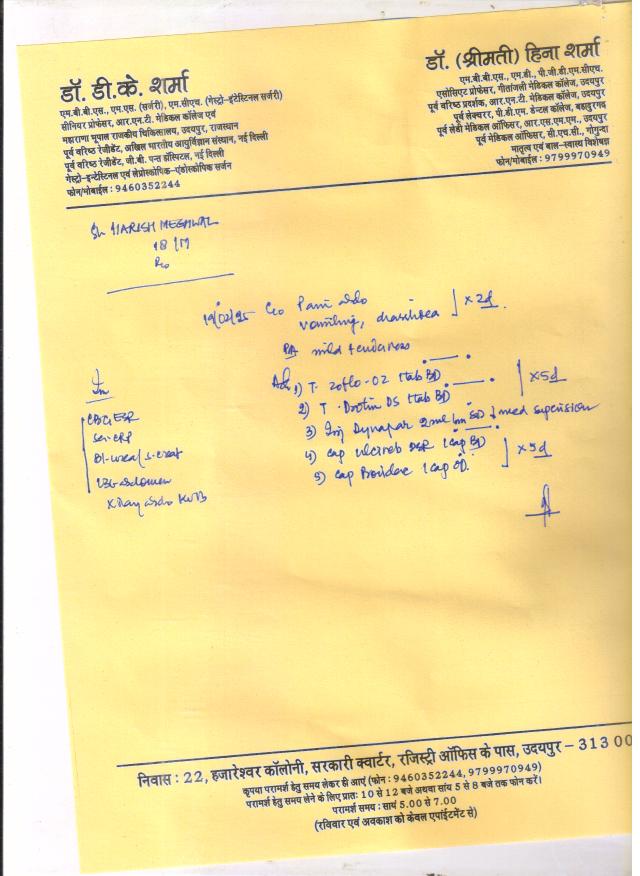 डॉ. डी.के. शर्मा
एम.बी.बी.एस., एम.एस. (सर्जरी), एम.सीएच. (गेस्ट्रो-इंटेस्टिनल सर्जरी)
सीनियर प्रोफेसर, आर.एन.टी. मेडिकल कॉलेज एवं
महाराणा भूपाल राजकीय चिकित्सालय, उदयपुर, राजस्थान
पूर्व वरिष्ठ रेजीडेंट, अखिल भारतीय आयुर्विज्ञान संस्थान, नई दिल्ली
पूर्व वरिष्ठ रेजीडेंट, जी.बी. पन्त हॉस्पिटल, नई दिल्ली
गेस्ट्रो-इन्टेस्टिनल एवं लेप्रोस्कोपिक-एंडोस्कोपिक सर्जन
फोन/मोबाईल : 9460352244
डॉ. (श्रीमती) हिना शर्मा
एम.बी.बी.एस., एम.डी., पी.जी.डी.एम.सीएच.
एसोसिएट प्रोफेसर, गीतांजली मेडिकल कॉलेज, उदयपुर
पूर्व वरिष्ठ प्रदर्शक, आर.एन.टी. मेडिकल कॉलेज, उदयपुर
पूर्व लेक्चरर, पी.डी.एम. डेन्टल कॉलेज, बहादुरगढ़
पूर्व लेडी मेडिकल ऑफिसर, आर.एस.एम.एम., उदयपुर
पूर्व मेडिकल ऑफिसर, सी.एच.सी., गोगुन्दा
मातृत्व एवं बाल-स्वास्थ्य विशेषज्ञ
फोन/मोबाईल : 9799970949
Sh HARISH MEGHWAL
18/M
19/02/25 C/o Pain abdo
vomiting, diarrhoea ] x 2d
P/A mild tenderness
Adv 1) T. Zoflo-OZ 1tab BD
2) T. Drotin DS 1tab BD ] x 5d
3) Inj Dynapar 2ml Im med supervision
4) Cap DSR 1cap
5) Cap 1cap OD ] x 5d
CBC, ESR
Ser. CRP
Bl-urea/s. creat
USG abdomen
X Ray abdo KUB
निवास : 22, हजारेश्वर कॉलोनी, सरकारी क्वार्टर, रजिस्ट्री ऑफिस के पास, उदयपुर - 313 00
कृपया परामर्श हेतु समय लेकर ही आएं (फोन : 9460352244, 9799970949)
परामर्श हेतु समय लेने के लिए प्रातः 10 से 12 बजे अथवा सांय 5 से 8 बजे तक फोन करें।
परामर्श समय : सायं 5.00 से 7.00
(रविवार एवं अवकाश को केवल एपॉइंटमेंट से)